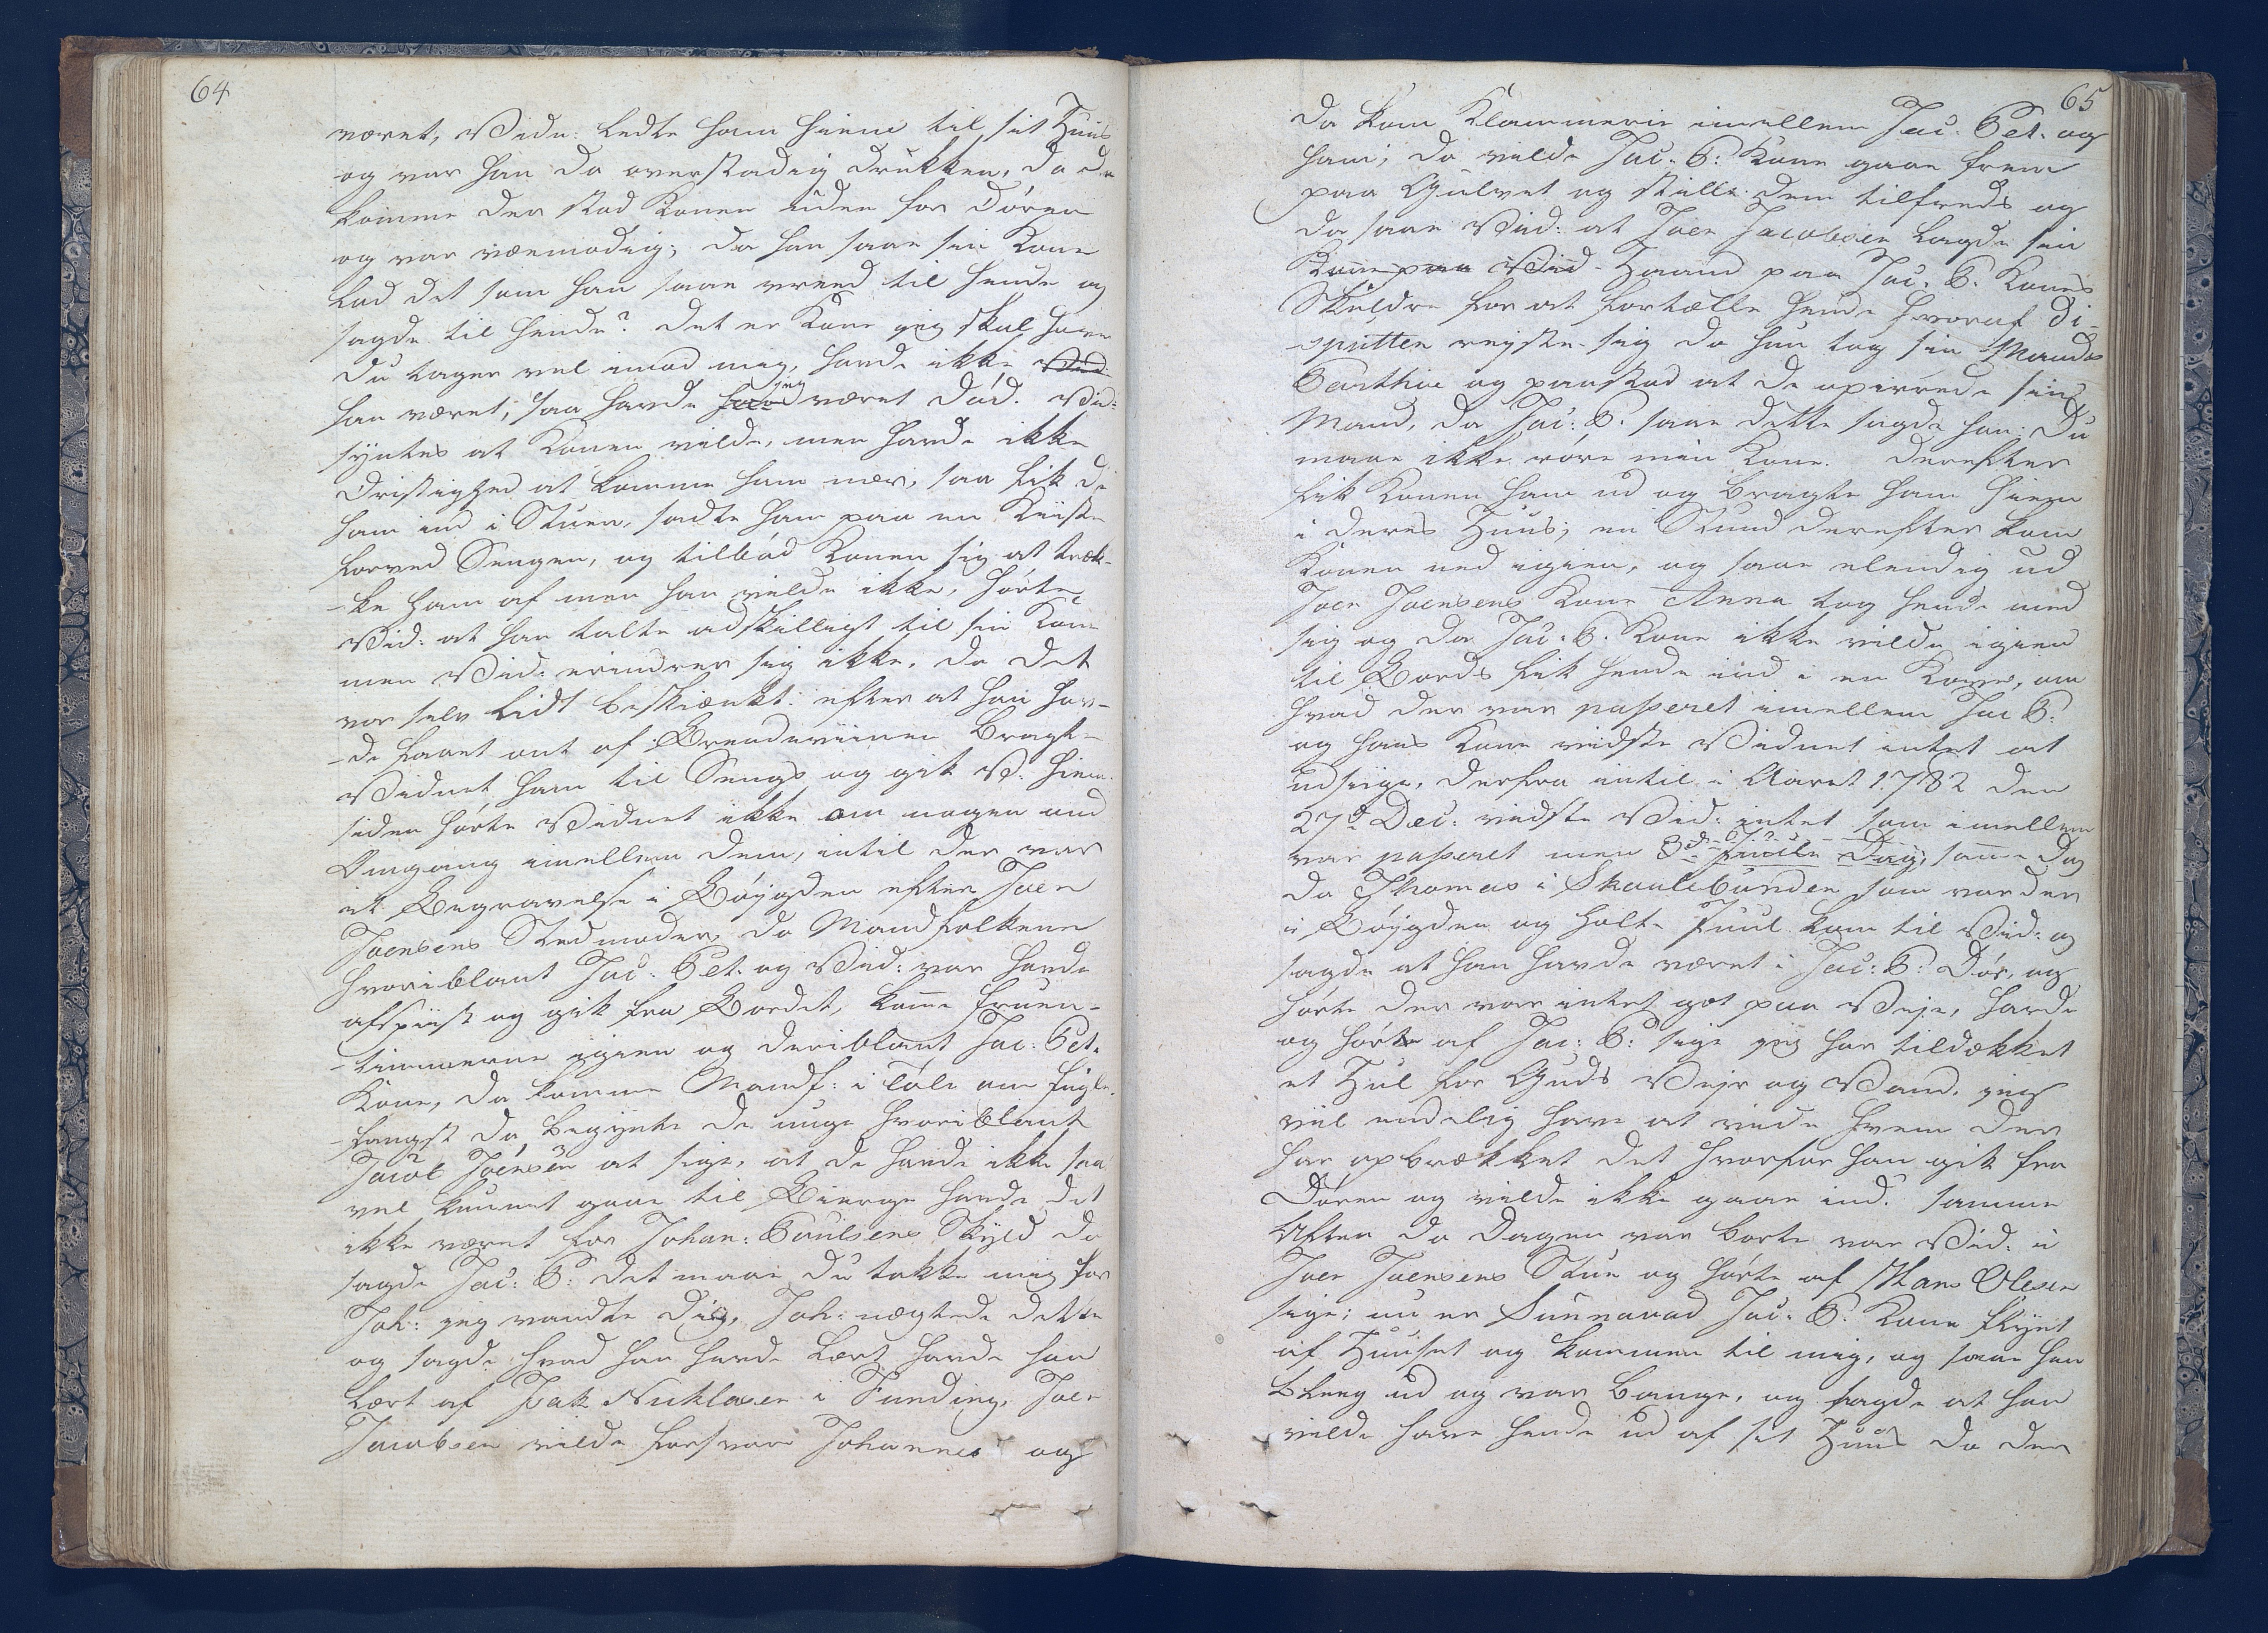 64
været, Vidn: ledte ham hiem til sit Huus
og var han da overstadig drukken, da de
komme der stod Konen uden for Døren
og var væemodig; da han saae sin Kone
lod det som han saae vreed til hende og
sagde til hende? det er Kone jeg skal have
du tager vel imod mig, havde ikke Vid:
han været, saa havde jeg været død. Vid:
syntes at Konen vilde, men havde ikke
dristighed at komme ham nær, saa fik de
ham ind i Stuen, sadte ham paa en Kiiste
forved Sengen, og tilbød Konen sig at træk-
-ke ham af men han vilde ikke, hørte
Vid: at han talte adskilligt til sin Kone
men Vid: erindrer sig ikke, da det
var selv lidt beskiænkt: efter at han hav-
-de faaet ont af Brendeviinen bragte
Vidnet ham til Sengs og gik V. hiem.
siden hørte Vidnet ikke om nogen ond
Omgang imellem dem, intil der var
et Begravelse i Bøygden efter Joen
Joensens Stedmoder, da Mandfolkene
hvoriblant Jac: Pet. og Vid: var havde
afspiist og gik fra Bordet, komme fruen-
-timmerne igien og deriblant Jac: Pet.
Kone, da komme Mandf: i Tale om fugle-
-fangst da begynte de unge hvoriblant
Jacob Joensen at sige, at de havde ikke saa
vel kunnet gaae til Bierge havde det
ikke været for Johan: Poulsens Skyld da
sagde Jac: P: det maae du takke mig for
Joh: jeg vandte dig, Joh: nægtede dette
og sagde hvad han havde lært havde han
lært af Isak Nicklasen i Funding, Joen
Jacobsen vilde forsvare Johannes og
65
da kom Klammerie imellem Jac: Pet. og
ham; da vilde Jac. P: Kone gaae frem
paa Gulvet og stille dem tilfreds og
da saae Vid: at Joen Jacobsen lagde sin
Kone paa Vid- Haand paa Jac. P. Kones
Skuldre for at fortælle hende hvoraf di-
-sputten reyste sig da hun tog sin Mands
Parthie og paastod at de opirrede sin
Mand, da Jac: P. saae dette sagde han: Du
maae ikke røre min Kone. derefter
fik Konen ham ud og bragte ham hiem
i deres Huus; en Stund derefter kom
Konen ned igien, og saae elendig ud
Joen Joensens Kone Anna tog hende med
sig og da Jac. P. Kone ikke vilde igien
til Bords fik hende ind i en Kove, om
hvad der var passeret imellem Jac P.
og hans Kone vidste Vidnet intet at
udsiige, derfra intil i Aaret 1782 den
27d Dec: vidste Vid: intet som imellem
var passeret men 3die Juule Dag, samme Dag
da Thomas i Skaalebunden som var der
i Bøygden og holt Juul kom til Vid: og
sagde at han havde været i Jac: P: Dør, og
hørte der var intet got paa Veje, havde
og hørte af Jac: P: sige jeg har tildækket
et Hul for Guds Vejr og Vand, jeg
viil endelig have at viide hvem der
har opbrækket det hvorfor han gik fra
Døren og vilde ikke gaae ind. samme
Aften da Dagen var borte var Vid: i
Joen Joensens Stue og hørte af Hans Olesen
sige; nu er Sunnavad Jac. P. Kone flyet
af Huuset og kommen til mig, og saae han
bleeg ud og var bange, og sagde at han
vilde have hende ud af sit Huus da der